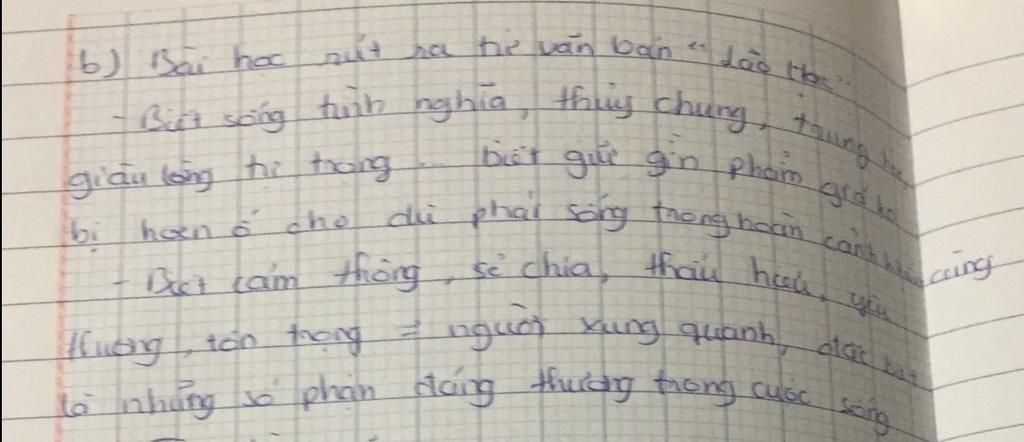 b) Bài học rút ra từ văn bản "Lão Hạc"
- Biết sống tình nghĩa, thủy chung, trung
giàu lòng tự trọng... biết giữ gìn phẩm giá ko
bị hoen ố cho dù phải sống trong hoàn cảnh cùng
- Biết cảm thông, sẻ chia, thấu hiểu, yêu
thương, tôn trọng = người xung quanh, đặc biệt
là những số phận đáng thương trong cuộc sống